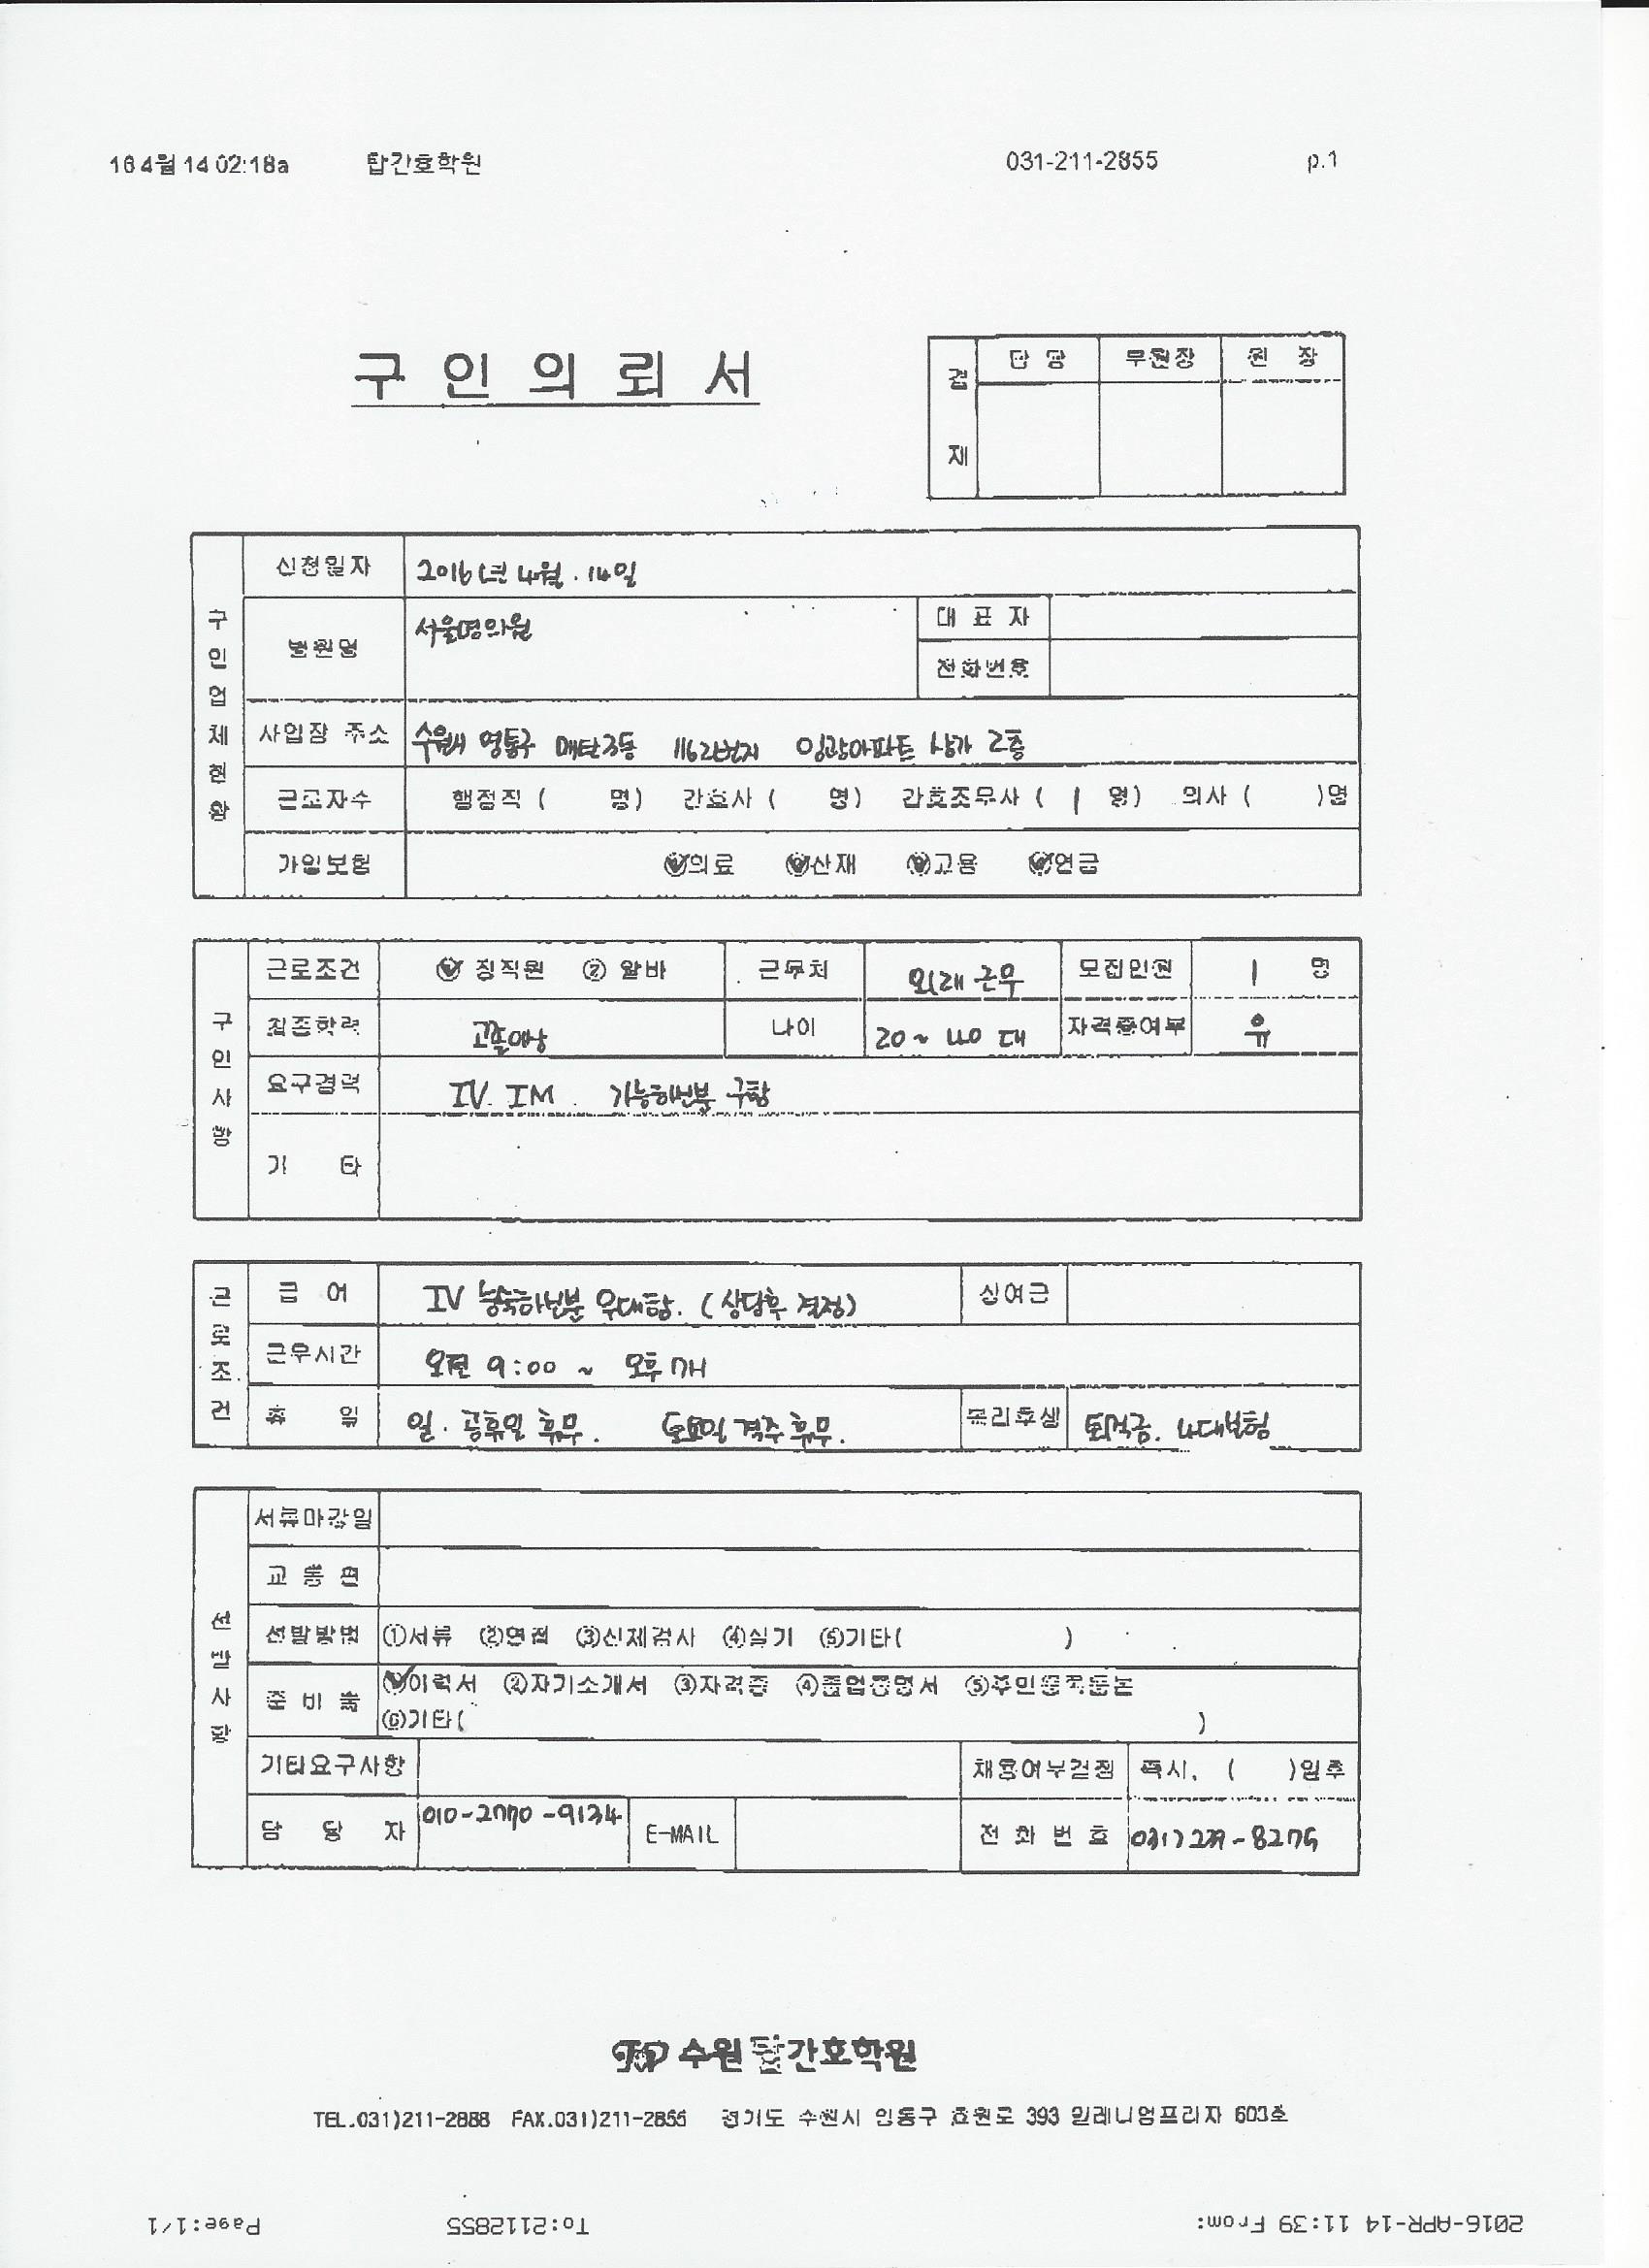 16 4월 14 02:18a 탑간호학원 031-211-2855 p.1
구인의뢰서
결재 담당 부원장 원장
구인업체현황
신청일자 2016년 4월. 14일
병원명 서울명의원 대표자
전화번호
사업장 주소 수원시 영통구 매탄3동 1162번지 임광아파트 상가 2층
근로자수 행정직 ( 명) 간호사 ( 명) 간호조무사 ( 1 명) 의사 ( )명
가입보험 의료 산재 고용 연금
구인사항
근로조건 정직원 ② 알바 근무처 외래 근무 모집인원 1 명
최종학력 고졸이상 나이 20 ~ 40 대 자격증여부 유
요구경력 IV. IM. 가능하신분 구함
기 타
근로조건
급 여 IV 능숙하신분 우대함. (상담후 결정) 상여금
근무시간 오전 9:00 ~ 오후 7시
휴 일 일. 공휴일 휴무. 토요일 격주 휴무. 복리후생 퇴직금. 4대보험
선발사항
서류마감일
교 통 편
선발방법 ①서류 ②면접 ③신체검사 ④실기 ⑤기타( )
준 비 물 이력서 ②자기소개서 ③자격증 ④졸업증명서 ⑤주민등록등본
⑥기타( )
기타요구사항 채용여부결정 즉시, ( )일후
담 당 자 E-MAIL 전 화 번 호
TOP 수원 탑 간호학원
TEL.031)211-2888 FAX.031)211-2855 경기도 수원시 인동구 효원로 393 밀레니엄프라자 603호
2016-APR-14 11:39 From: To:2112855 Page:1/1